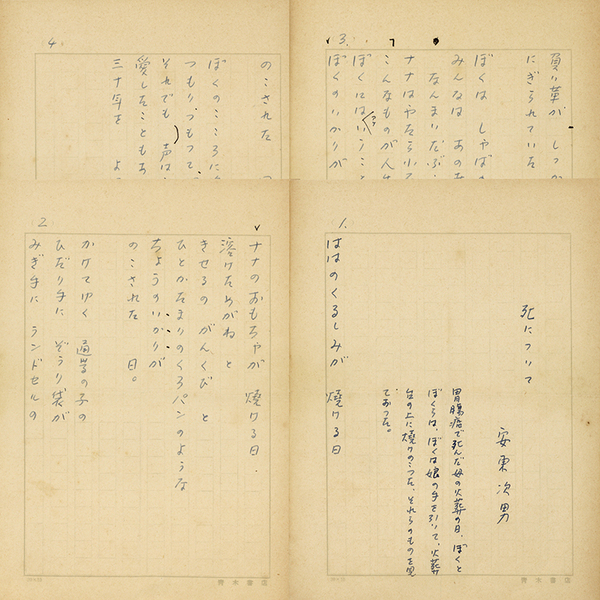 1.
死について
安東次男
胃腸病で死んだ母の火葬の日、ぼくと
ぼくらは、ぼくは娘の手を引いて、火葬
台の上に焼けのこった、それらのものを見
ておった。
ははのくるしみが 燒ける日
2
ナナのおもちゃが 燒ける日.
溶けためがね と
きせるの がんくび と
ひとかたまりのくろパンのような
ちょうのいかりが
のこされた 日。
かけてゆく 通学の子の
ひだり手に ぞうり袋が
みぎ手に ランドセルの
3.
負い革が しっか
にぎられていた
ぼくは しゃば
みんなは あの
なんまいだぶ.
ナナはやたら小
こんなものが人
ぼくにはいうこ
ぼくのいかりが
4.
のこされた
ぼくのこころに
つもり、つもって
それでも 声は
愛したこともあ
三十年を よ
青木書店
青木書店